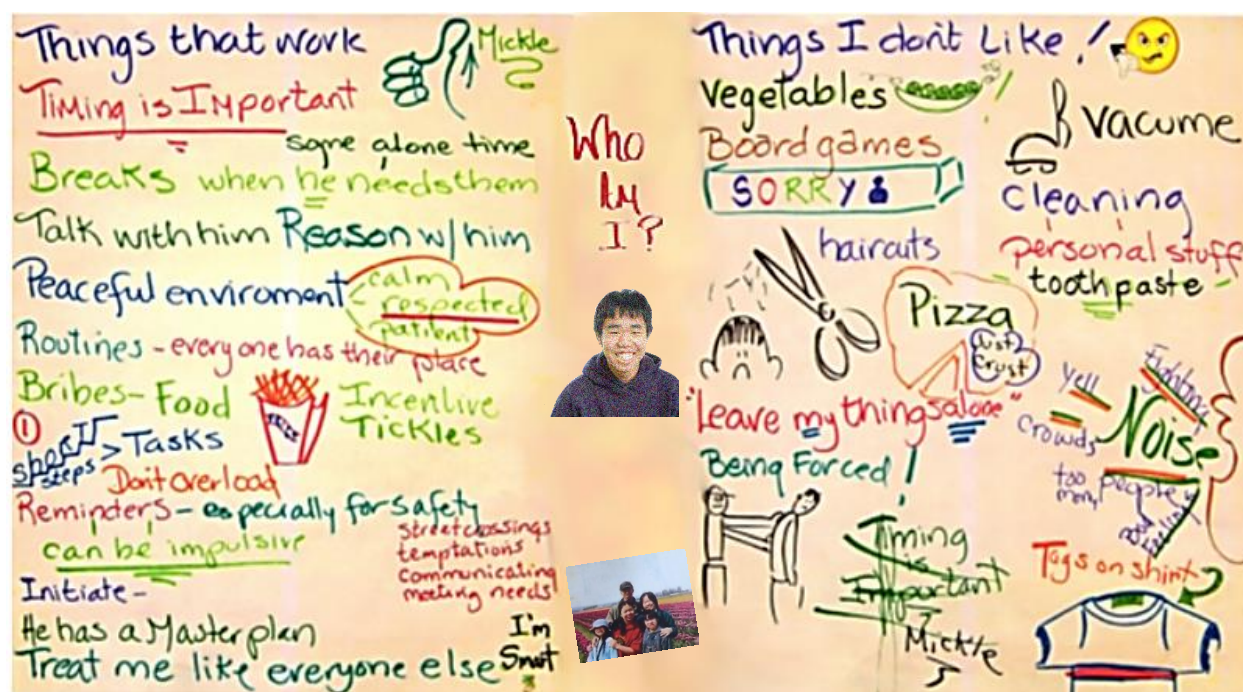 Things that work
Mickle
Timing is Important
some alone time
Breaks when he needs them
Talk with him Reason w/ him
Peaceful enviroment
calm
respected
patient
Routines - everyone has their place
Bribes - Food
Incentive
Tickles
1
short
steps > Tasks
Don't Overload
Reminders - especially for safety
can be impulsive
street crossings
temptations
communicating
meeting needs
Initiate -
He has a Master plan
Treat me like everyone else
I'm
Smart
Who
Am
I?
Things I don't Like!
Vegetables
Vacume
Board games
SORRY
Cleaning
personal stuff
toothpaste
haircuts
Pizza
Just
Crust
"Leave my things alone"
Being Forced!
Fighting
yell
Noise
Crowds
too
many people
Timing
is
Important
Mickle
Tags on shirt